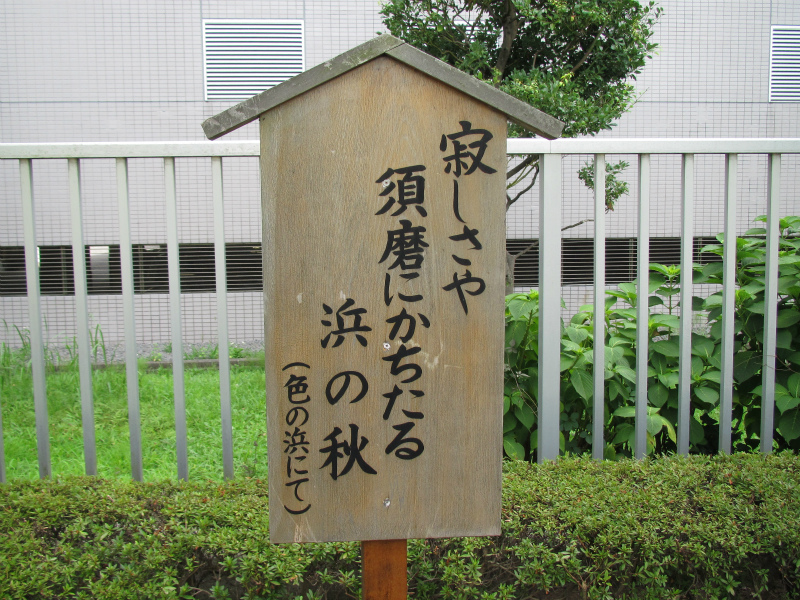 寂しさや
須磨にかちたる
浜の秋
(色の浜にて)